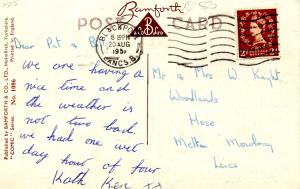 Bamforth
POST CARD
BLACKPOOL
8 15 PM
20 AUG
195
LANCS.
Dear Pat & Bill
We are having a
nice time and
the weather is
not two bad,
we had one wet
day hour of four
Kath Ken
Mr & Mrs W Knight
Woodlands
Hose
Melton Mowbray
Leics
Published by BAMFORTH & CO., LTD., Holmfirth, Yorkshire.
"COMIC" Series No. 1086 Printed in England.